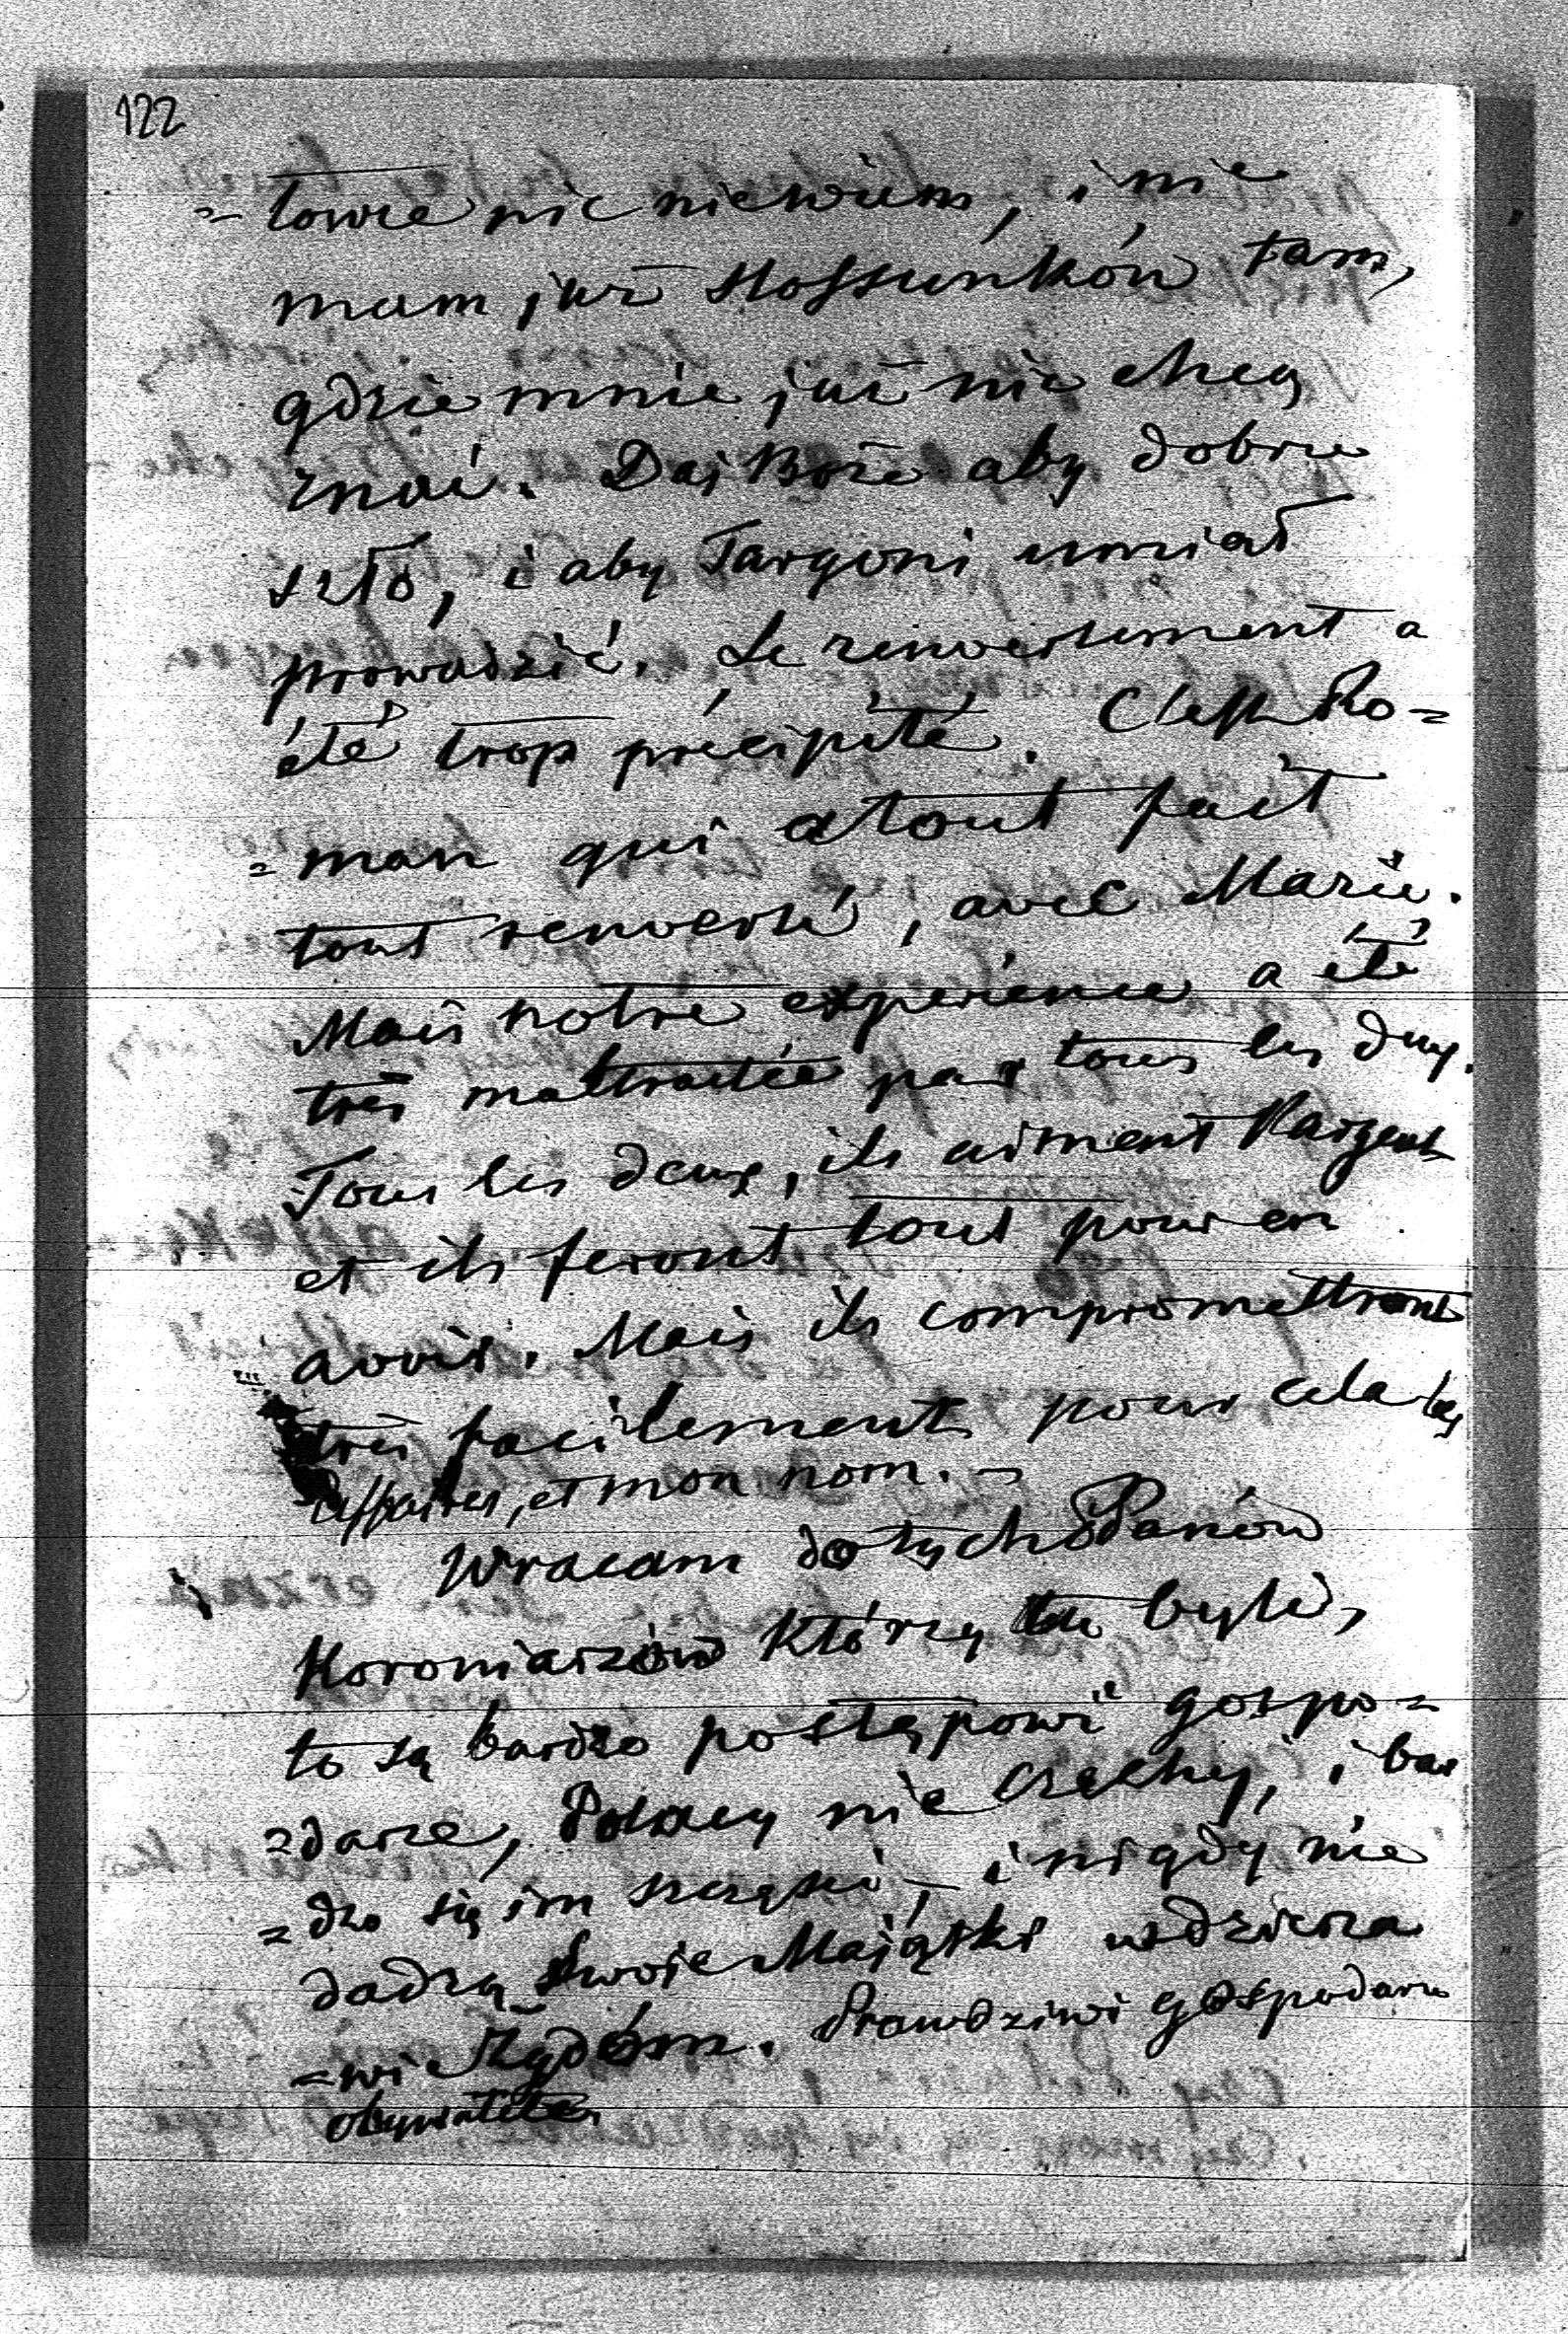 122
= towie nic niewiem, i nie
mam już stossunków tam,
gdzie mnie już nie chcą
znać. Daj Boże aby dobrze
szło, i aby Targoni umiał
prowadzić. Le renversement a
été trop précipité. C'est Ro=
=man qui a tout fait
tout renversé, avec Marie.
Mais notre expérience a été
très maltraitée par tous les deux.
Tous les deux, ils aiment l'argent
et ils feront tout pour en
avoir. Mais ils compromettront
très facilement pour cela les
affaires, et mon nom. -
Wracam do tych Panów
Koroniarzów którzy tu byli,
to są bardzo postępowi gospo=
=darze, Polacy nie, i bar
=dzo się im szczęści, i nigdy nie
dadzą swoje Majątki w dzierża
=wie Żydóm. Prawdziwi gospodarze
obywatele